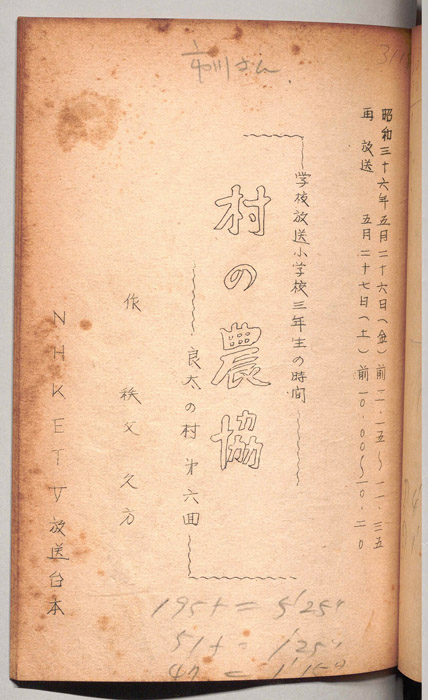 昭和三十六年五月二十六日（金）前一一・一五～一一・三五
再放送　五月二十七日（土）前一〇・〇〇～一〇・二〇
学校放送小学校三年生の時間
村の農協
良太の村　第六回
作　秩父久方
NHKETV放送台本
市川さん
195+ = 5'25"
51+ = 1'25"